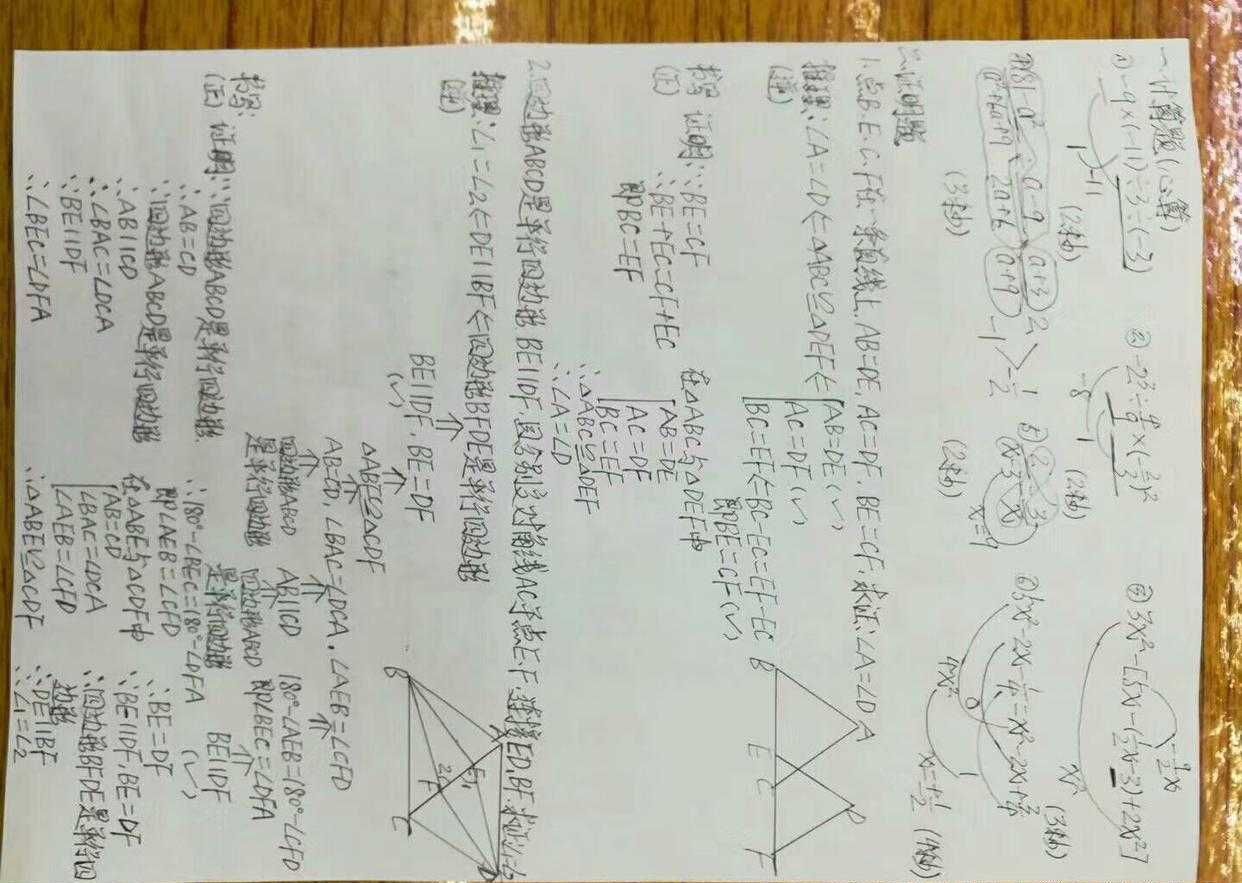 一.计算题(心算)
① -9×(-11)÷3÷(-3) (2秒)
-11
② -2³÷4/9×(-2/3)² (2秒)
-8 1
③ 3x²-[5x-(1/2x-3)+2x²]
-9/2x
x²
(3秒)
a+3 2
a+9 -1
1/2
(3秒)
x-3 x
x=9
(2秒)
(4秒)
二.证明题
1.点B.E.C.F在一条直线上,AB=DE,AC=DF,BE=CF,求证:∠A=∠D
推理:∠A=∠D⇐△ABC≌△DEF⇐
(逆)
AB=DE(√)
AC=DF(√)
BC=EF⇐BC-EC=EF-EC
即BE=CF(√)
A
D
B E C F
书写:
(正)
证明:∵BE=CF
∴BE+EC=CF+EC
即BC=EF
在△ABC与△DEF中
AB=DE
AC=DF
BC=EF
∴△ABC≌△DEF
∴∠A=∠D
2.四边形ABCD是平行四边形 BE∥DF,且分别交对角线AC于点E.F 连接ED,BF 求证∠1=∠2
推理:∠1=∠2⇐DE∥BF⇐四边形BFDE是平行四边形
(逆)
⇑
BE∥DF,BE=DF
(√) ⇑
△ABE≌△CDF
⇑
AB=CD,∠BAC=∠DCA,∠AEB=∠CFD
⇑ ⇑ ⇑
四边形ABCD AB∥CD 180°-∠AEB=180°-∠CFD
是平行四边形 ⇑ 即∠BEC=∠DFA
四边形ABCD ⇑
是平行四边形 BE∥DF
(√)
A
B
C
D
E
F
1
2
书写:
(正)
证明:∵四边形ABCD是平行四边形
∴AB=CD
∵四边形ABCD是平行四边形
∴AB∥CD
∴∠BAC=∠DCA
∵BE∥DF
∴∠BEC=∠DFA
∴180°-∠BEC=180°-∠DFA
即∠AEB=∠CFD
在△ABE与△CDF中
AB=CD
∠BAC=∠DCA
∠AEB=∠CFD
∴△ABE≌△CDF
∴BE=DF
∵BE∥DF,BE=DF
∴四边形BFDE是平行四
边形
∴DE∥BF
∴∠1=∠2